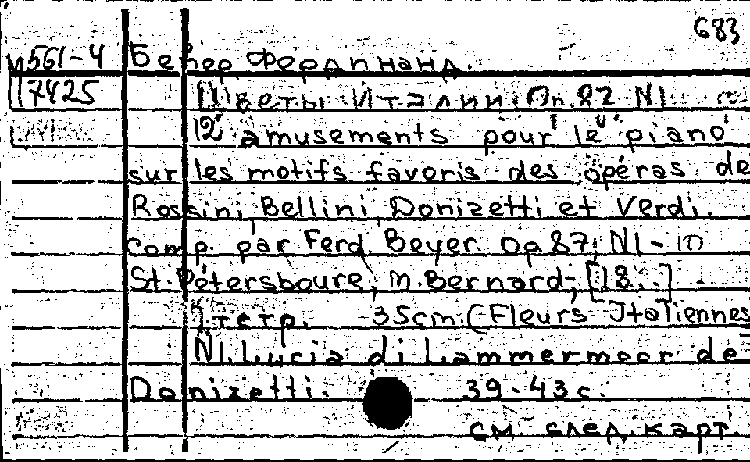 683
М561-4 Бейер Фердинанд.
17425 Цветы Италии. Оп. 87 N1
12 amusements pour le piano
sur les motifs favoris des opéras de
Rossini, Bellini, Donizetti et Verdi.
comp. par Ferd Beyer. Op 87; N1-10
St. Pétersboure, M. Bernard, [18..]
1 тетр. 35cm. (Fleurs Italiennes
N1. Lucia di Lammermoor de
Donizetti. 39-43 с.
см. след. карт.